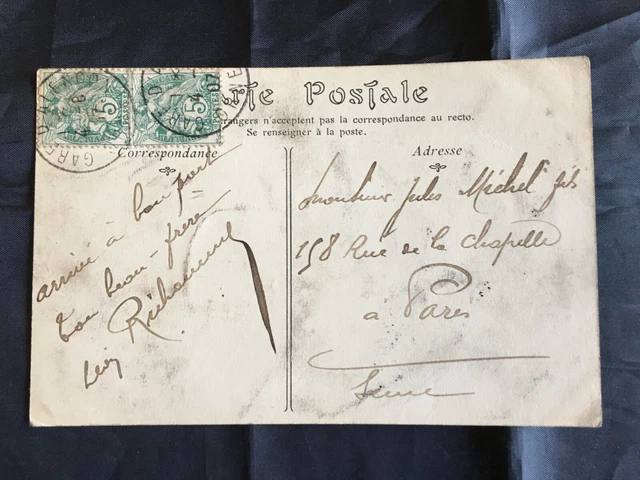 Carte Postale
étrangers n'acceptent pas la correspondance au recto.
Se renseigner à la poste.
Correspondance
Adresse
arrivé à bon port
ton beau-frère
Monsieur Jules Michel fils
158 Rue de la Chapelle
à Paris
Seine
5
5
GARE
GARE